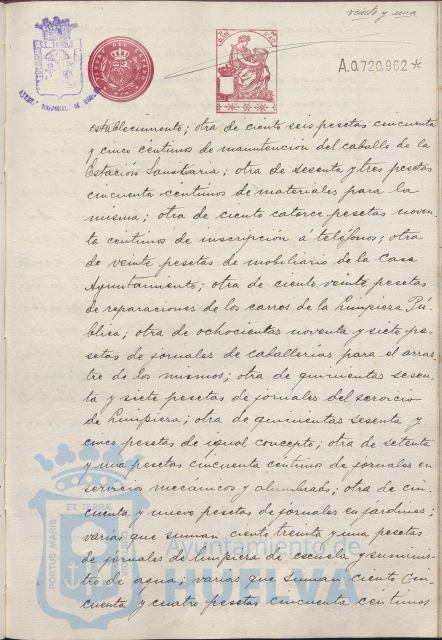 veinte y una
A.0.720.962*
establecimiento; otra de ciento seis pesetas cincuenta
y cinco centimos de manutencion del caballo de la
Estación Sanitaria; otra de sesenta y tres pesetas
cincuenta centimos de materiales para la
misma; otra de ciento catorce pesetas noven
ta centimos de inscripcion á teléfonos; otra
de veinte pesetas de mobiliario de la Casa
Ayuntamiento; otra de ciento veinte pesetas
de reparaciones de los carros de la Limpieza Pú
blica; otra de ochocientas noventa y siete pe-
setas de jornales de caballerias para el arras
tre de los mismos; otra de quinientas sesen
ta y siete pesetas de jornales del servicio
de Limpieza; otra de quinientas sesenta y
cinco pesetas de igual concepto; otra de setenta
y una pesetas cincuenta centimos de jornales en
servicios mecánicos y alumbrado; otra de cin-
cuenta y nueve pesetas de jornales en jardines;
varias que suman ciento treinta y una pesetas
de jornales de limpieza de escuela y suminis-
tro de agua; varias que suman ciento cin-
cuenta y cuatro pesetas cincuenta centimos
EL TIMBRE
PORTUS MARIS
Ayuntamiento de
HUELVA